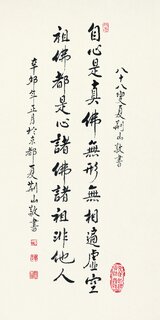 自心是真佛無形無相遍虛空
祖佛都是心諸佛諸祖非他人
辛卯年正月於京都夏荆山敬書
八十八叟夏荆山敬書